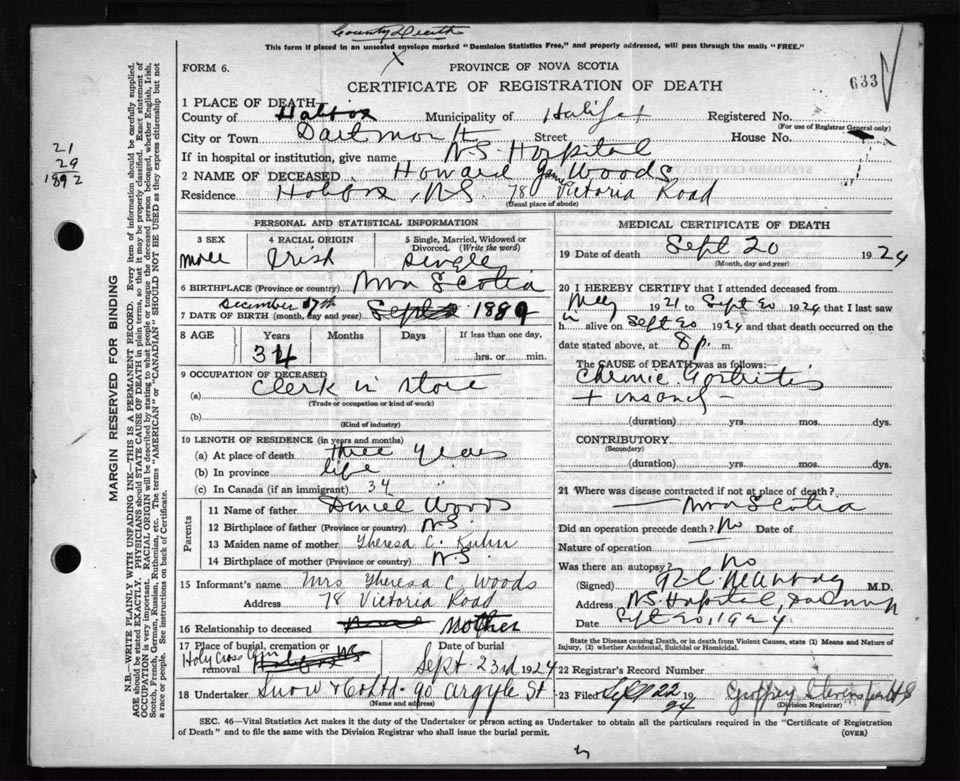 County Death
This form if placed in an unsealed envelope marked "Dominion Statistics Free," and properly addressed, will pass through the mails "FREE."
X
FORM 6.
PROVINCE OF NOVA SCOTIA
CERTIFICATE OF REGISTRATION OF DEATH
633
1 PLACE OF DEATH
County of Halifax Municipality of Halifax Registered No.
(For use of Registrar General only)
City or Town Dartmouth Street House No.
If in hospital or institution, give name N.S. Hospital
2 NAME OF DECEASED Howard Woods
Residence Halifax, N.S. 78 Victoria Road
(Usual place of abode)
21
29
1892
MARGIN RESERVED FOR BINDING
N.B.—WRITE PLAINLY WITH UNFADING INK—THIS IS A PERMANENT RECORD. Every item of information should be carefully supplied.
AGE should be stated EXACTLY. PHYSICIANS should STATE CAUSE OF DEATH in plain terms, so that it may be properly classified. Exact statement of
OCCUPATION is very important. RACIAL ORIGIN will be described by stating to what people or tongue the deceased person belonged, whether English, Irish,
Scotch, French, German, Russian, Ruthenian, etc. The terms "AMERICAN" or "CANADIAN" SHOULD NOT BE USED as they express citizenship but not
a race or people. See instructions on back of Certificate.
PERSONAL AND STATISTICAL INFORMATION
3 SEX
male
4 RACIAL ORIGIN
Irish
5 Single, Married, Widowed or
Divorced. (Write the word)
Single
6 BIRTHPLACE (Province or country) Nova Scotia
December 17th
7 DATE OF BIRTH (month, day and year) Sept 1889
8 AGE
Years
Months
Days
If less than one day,
34
hrs. or min.
9 OCCUPATION OF DECEASED
(a) Clerk in store
(Trade or occupation or kind of work)
(b)
(Kind of industry)
10 LENGTH OF RESIDENCE (in years and months)
(a) At place of death three years
(b) In province life
(c) In Canada (if an immigrant) 34 "
Parents
11 Name of father Daniel Woods
12 Birthplace of father (Province or country) N.S.
13 Maiden name of mother Theresa C. Kuhn
14 Birthplace of mother (Province or country) N.S
15 Informant's name Mrs Theresa C. Woods
Address 78 Victoria Road
16 Relationship to deceased Mother
17 Place of burial, cremation or
removal Holy Cross Cem
Date of burial
Sept. 23rd 1924
18 Undertaker Snow & Co Ltd. 90 Argyle St
(Name and address)
MEDICAL CERTIFICATE OF DEATH
19 Date of death Sept 20 1924
(Month, day and year)
20 I HEREBY CERTIFY that I attended deceased from
May 1921 to Sept 20 1924 that I last saw
him alive on Sept 20 1924 and that death occurred on the
date stated above, at 8 p. m.
The CAUSE of DEATH was as follows:
Chronic Gastritis
+ insanity
(duration) yrs. mos. dys.
CONTRIBUTORY
(Secondary)
(duration) yrs. mos. dys.
21 Where was disease contracted if not at place of death?
Nova Scotia
Did an operation precede death? No Date of
Nature of operation
Was there an autopsy? No
(Signed) M.D.
Address N.S. Hospital, Dartmouth
Date Sept 20, 1924.
State the Disease causing Death, or in death from Violent Causes, state (1) Means and Nature of
Injury, (2) whether Accidental, Suicidal or Homicidal.
22 Registrar's Record Number
23 Filed Sept 22 1924 Geoffrey Stevens
(Division Registrar)
SEC. 46—Vital Statistics Act makes it the duty of the Undertaker or person acting as Undertaker to obtain all the particulars required in the "Certificate of Registration
of Death" and to file the same with the Division Registrar who shall issue the burial permit.
(OVER)